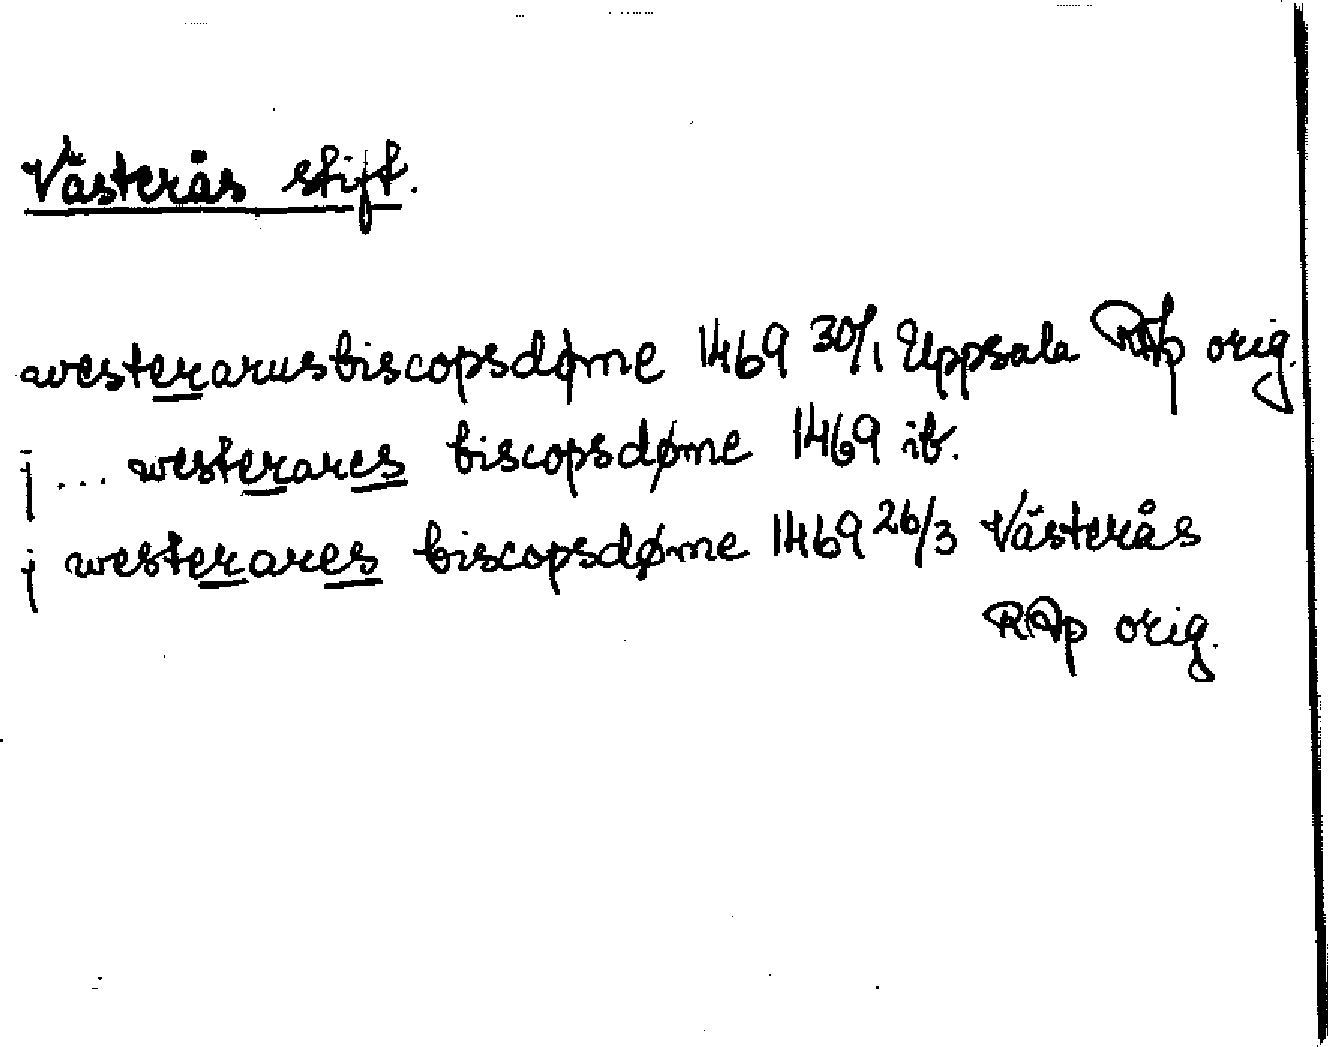 Västerås stift.
westerarusbiscopsdøme 1469 30/1 Uppsala RAp orig.
j ... westerares biscopsdøme 1469 ib.
j westerares biscopsdøme 1469 26/3 Västerås
RAp orig.